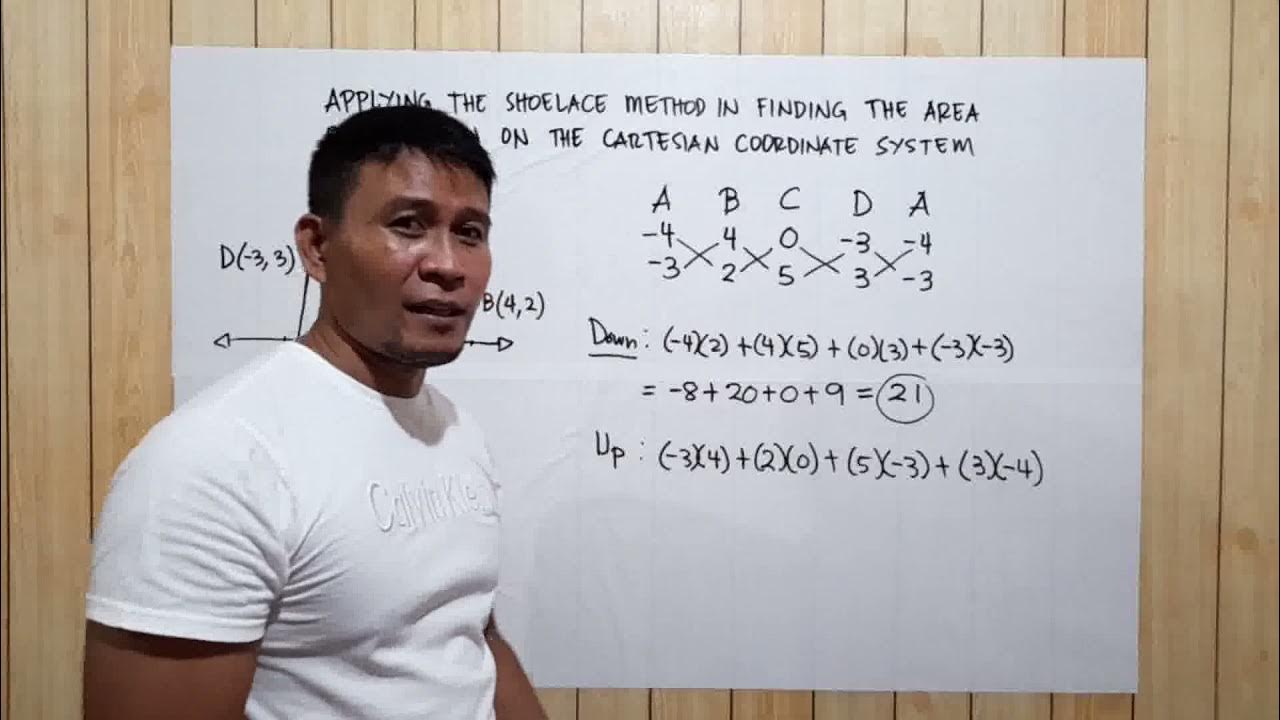 APPLYING THE SHOELACE METHOD IN FINDING THE AREA
ON THE CARTESIAN COORDINATE SYSTEM
A B C D A
-4 4 0 -3 -4
-3 2 5 3 -3
D(-3, 3)
B(4, 2)
Down: (-4)(2) + (4)(5) + (0)(3) + (-3)(-3)
= -8 + 20 + 0 + 9 = 21
Up: (-3)(4) + (2)(0) + (5)(-3) + (3)(-4)
Calvin Kle